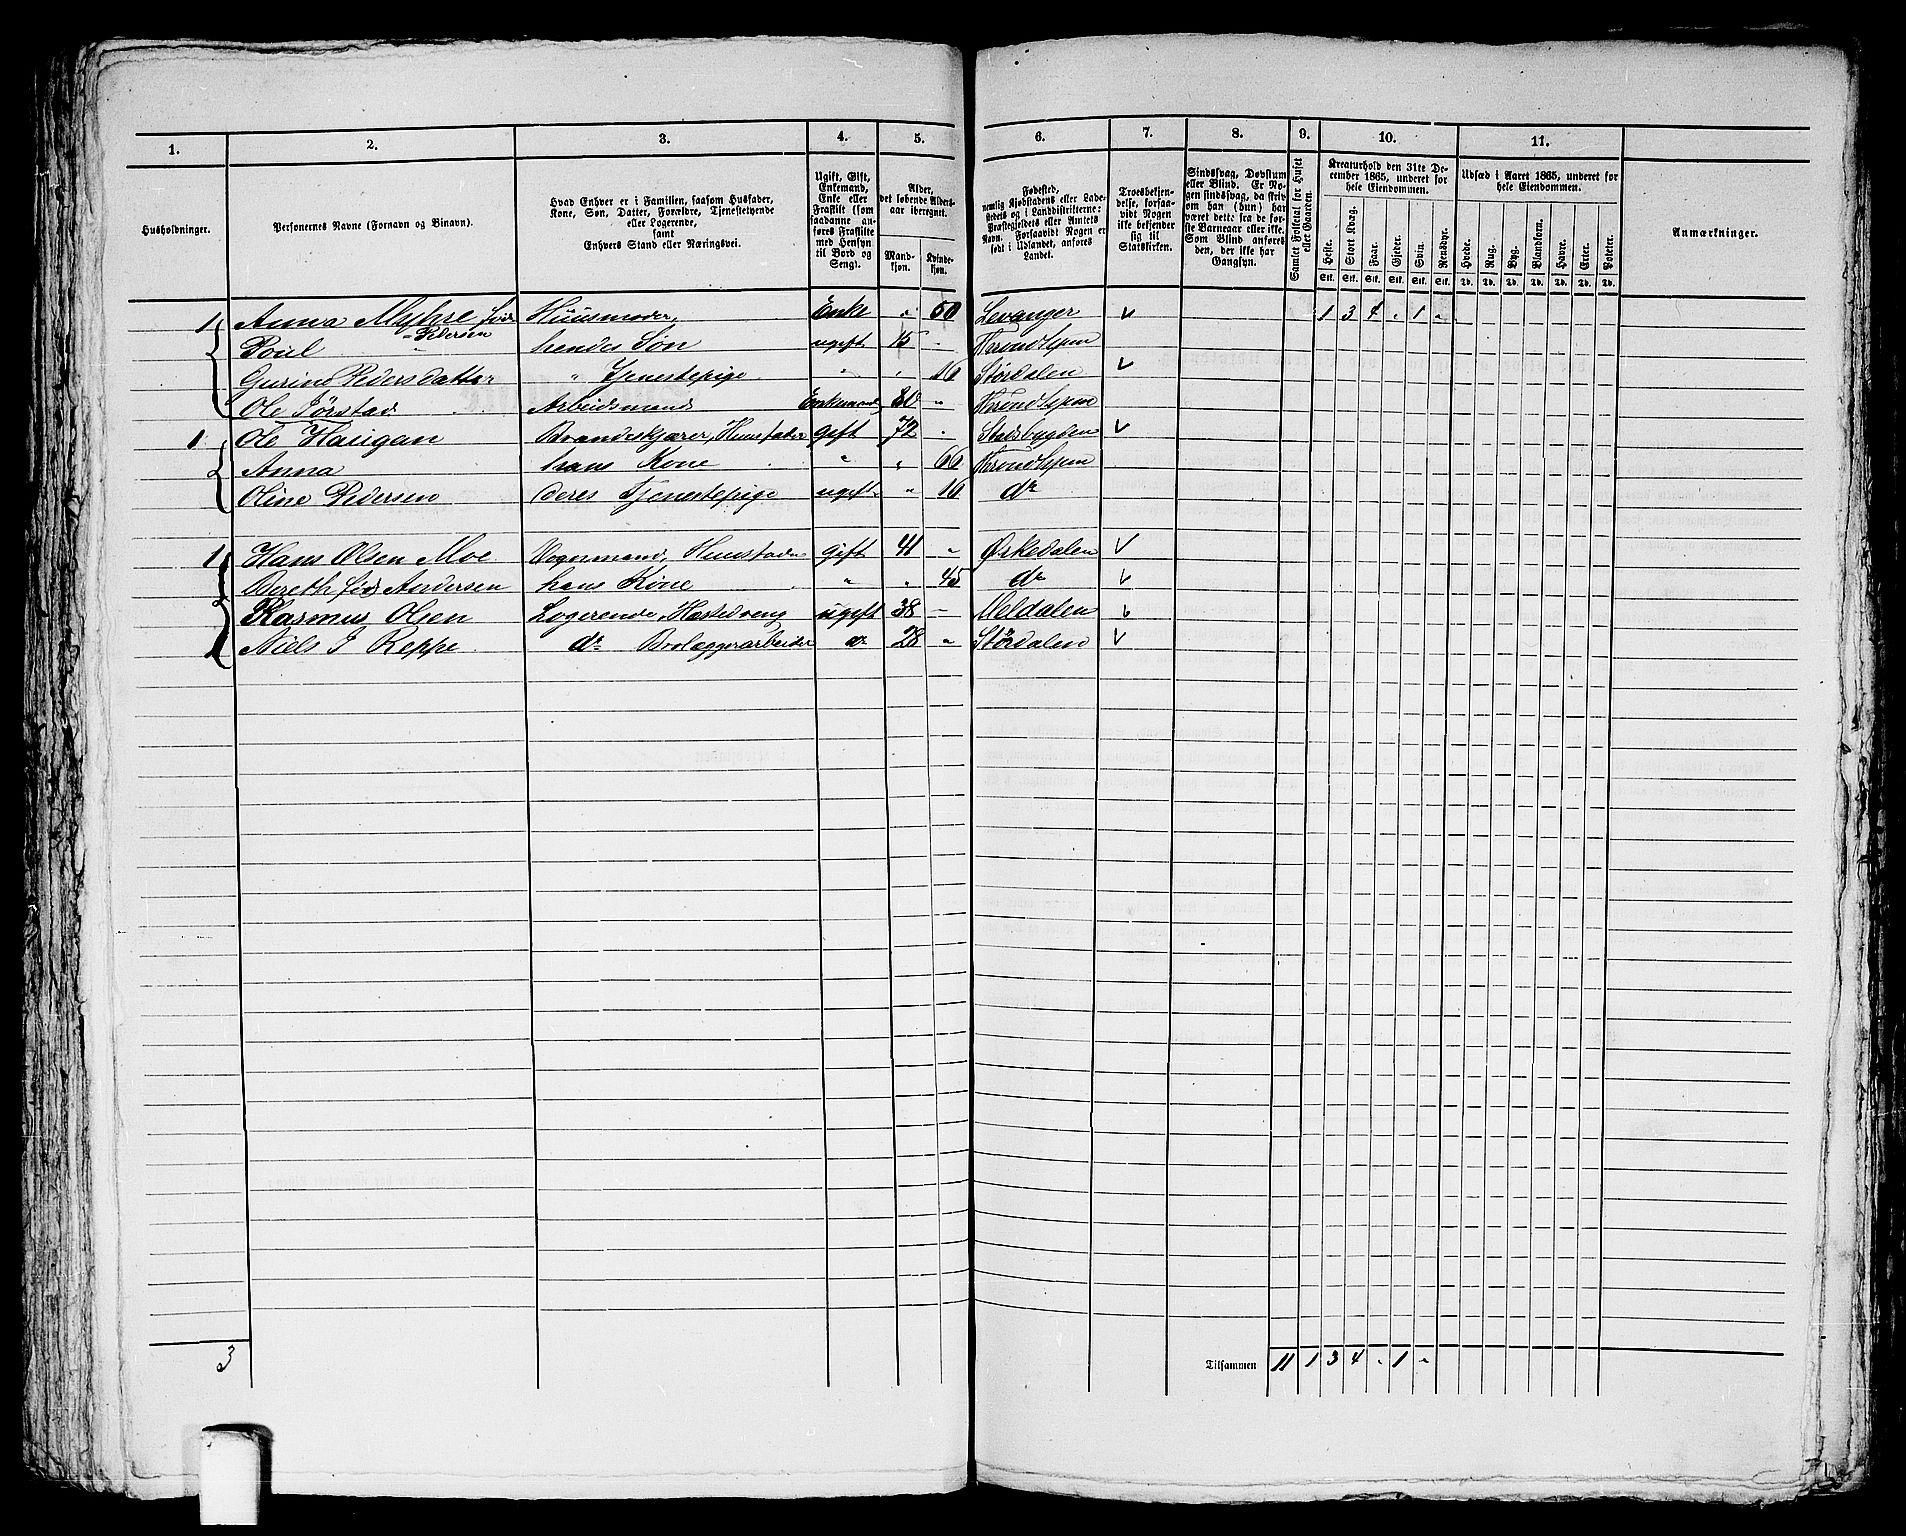 1. 2. 3. 4. 5. 6. 7. 8. 9. 10. 11.
Husholdninger.
Personernes Navne (Fornavn og Binavn).
Hvad Enhver er i Familien, saasom Husfader,
Kone, Søn, Datter, Forældre, Tjenestetyende
eller Logerende,
samt
Enhvers Stand eller Næringsvei.
Ugift, Gift,
Enkemand,
Enke eller
Fraskilt (som
saadanne an-
føres Fraskilte
med Hensyn
til Bord og
Seng).
Alder,
det løbende Alders-
aar iberegnet.
Mand-
kjøn.
Kvinde-
kjøn.
Fødested,
nemlig Kjøbstadens eller Lade-
stedets og i Landdistrikterne:
Præstegjeldets eller Amtets
Navn. Forsaavidt Nogen er
født i Udlandet, anføres
Landet.
Troesbekjen-
delse, forsaa-
vidt Nogen
ikke bekjender
sig til
Statskirken.
Sindssvag, Døvstum
eller Blind. Er No-
gen sindssvag, da skriv
om han (hun) har
været dett: fra de før-
ste Barneaar eller ikke.
Som Blind anføres
den, der ikke har
Gangsyn.
Samlet Folketal for Huset
eller Gaarden.
Kreaturhold den 31te De-
cember 1865, underet for
hele Eiendommen.
Heste. Stort Kvæg. Faar. Gjeder. Svin. Rensdyr.
Stk. Stk. Stk. Stk. Stk. Stk.
Udsæd i Aaret 1865, underet for
hele Eiendommen.
Hvede. Rug. Byg. Blandkorn. Havre. Erter. Poteter.
Td. Td. Td. Td. Td. Td. Td.
Anmærkninger.
1 Anna Myhre født Huusmoder, Enke " 50 Levanger 1 3 4 - 1 -
Pedersen
Poul " hendes Søn ugift 15 - Throndhjem
Gurine Pedersdatter " Tjenestepige " " 16 Størdalen
Ole Tørstad Arbeidsmand Enkemand 80 " Throndhjem
1 Ole Haugan Brændeskjærer, Huusfader gift 72 - Stadsbygden
Anna hans Kone " " 66 Throndhjem
Oline Pedersen deres Tjenestepige ugift " 16 do
1 Hans Olsen Moe Vognmand, Huusfader gift 41 " Ørkedalen
Bereth født Andersen hans Kone " " 45 do
Rasmus Olsen Logerende, ugift 38 - Meldalen
Niels J Reppe do Brolæggerarbeider do 28 " Størdalen
3 Tilsammen 11 1 3 4 - 1 -